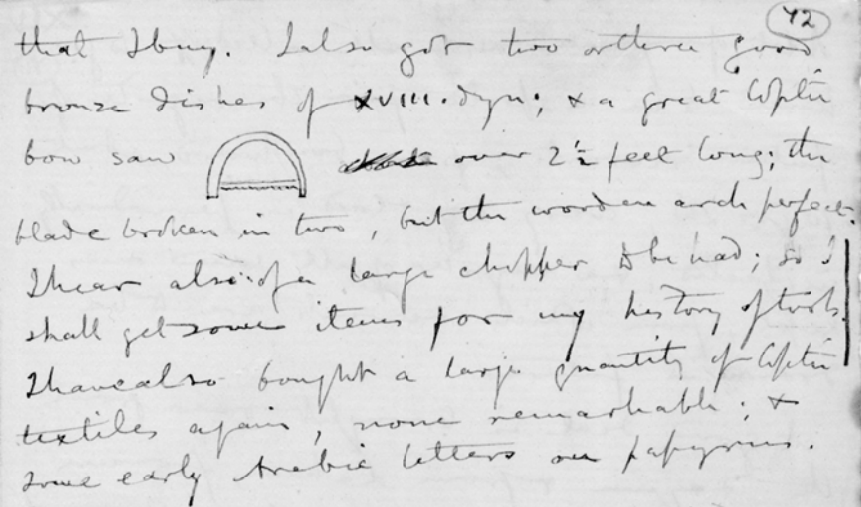 42
that I buy. I also got two or three good
bronze dishes of XVIII. dyn; & a great Coptic
bow saw over 2½ feet long; the
blade broken in two, but the wooden arch perfect.
I hear also of a large chopper to be had; so I
shall get some items for my history of tools.
I have also bought a large quantity of Coptic
textiles again, none remarkable; &
some early Arabic letters on papyrus.